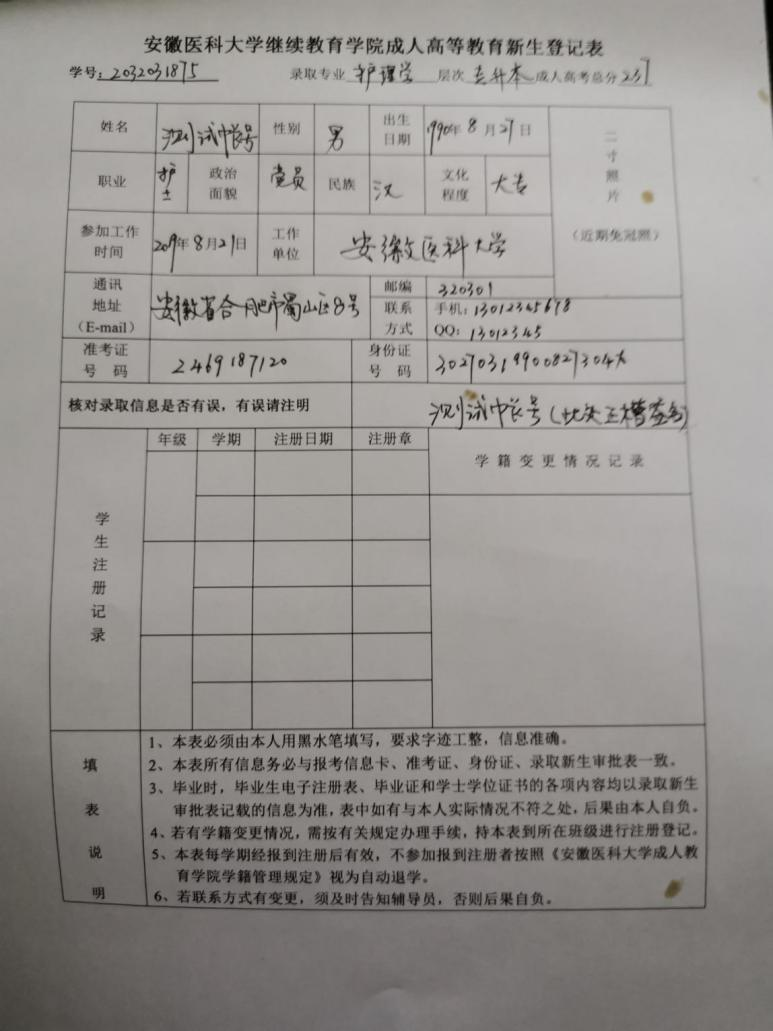 安徽医科大学继续教育学院成人高等教育新生登记表
学号：2032031875 录取专业 护理学 层次 专升本 成人高考总分 237
姓名 测试中长号 性别 男 出生日期 1990年8月27日 二寸照片（近期免冠照）
职业 护士 政治面貌 党员 民族 汉 文化程度 大专
参加工作时间 年8月21日 工作单位 安徽医科大学
通讯地址（E-mail） 安徽省合肥市蜀山区8号 邮编 320301
联系方式 手机：13012345678
QQ：13012345
准考证号码 2469187120 身份证号码
核对录取信息是否有误，有误请注明 测试中长号（此处正楷签名）
学生注册记录 年级 学期 注册日期 注册章 学籍变更情况记录
填表说明
1、本表必须由本人用黑水笔填写，要求字迹工整，信息准确。
2、本表所有信息务必与报考信息卡、准考证、身份证、录取新生审批表一致。
3、毕业时，毕业生电子注册表、毕业证和学士学位证书的各项内容均以录取新生
审批表记载的信息为准，表中如有与本人实际情况不符之处，后果由本人自负。
4、若有学籍变更情况，需按有关规定办理手续，持本表到所在班级进行注册登记。
5、本表每学期经报到注册后有效，不参加报到注册者按照《安徽医科大学成人教
育学院学籍管理规定》视为自动退学。
6、若联系方式有变更，须及时告知辅导员，否则后果自负。